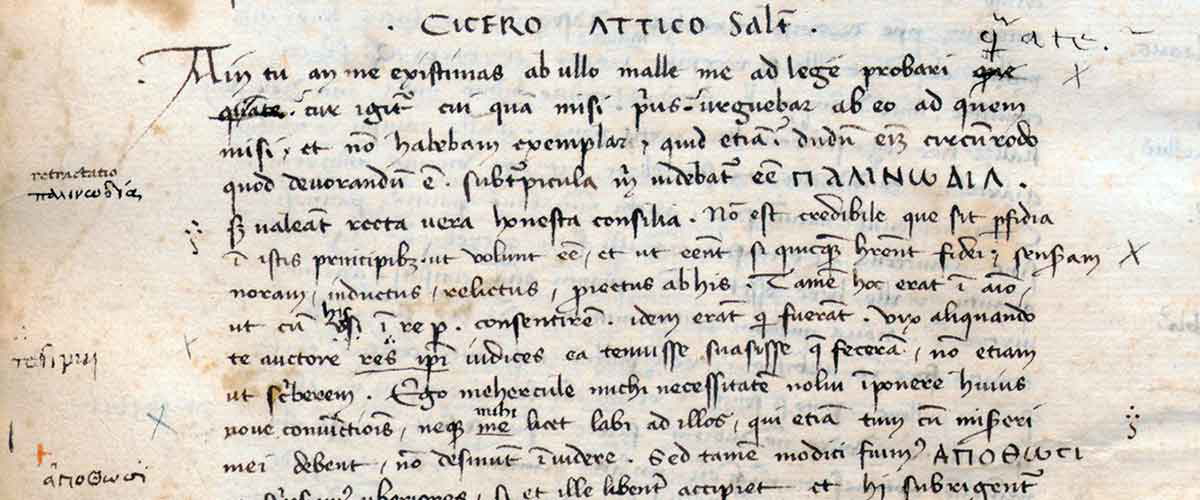 · CICERO ATTICO Salt̄ ·
a t e .
Ain tu an me existimas ab ullo malle me ad lege probari que
quate. cur igit᷑ cui quā misi p̄us. urguebar ab eo ad quem
misi, et nō habebam exemplar, quid etiā? dudū eiꝫ circūrodo
retractatio
quod devorandū ē. subt᷑picula m̄ videbat᷑ eē ΠΑΛΙΝΩΔΙΑ.
παλινωδία
sꝫ valeant recta vera honesta consilia. Nō est credibile que sit ꝑfidia
ī istis principibꝫ ut volunt eē, et ut eēnt si quicꝗ̄ hrēnt fidei: senseram
noram, inductus, relictus, proiectus ab his. Tamē hoc erat ī aīo,
ut cū his ī re p. consentirē. idem erāt qi fuerāt. vix aliquando
te auctore res ip̄i iudices ea tenuisse suasisse q̄ fecerā, nō etiam
ut sc̄berem. Ego mehercule michi necessitatē volui īponere huius
mihi
nove convictiōis, neqꝫ me licet labi ad illos, qui etiā tum cū misereri
mei debent, nō desinunt īvidere. Sed tamē modici fuimꝰ ΑΠΟΘΩϹΙ
ἀποθωσι
uberiores, si et ille libent᷑ accipiet et hi subrigent᷑